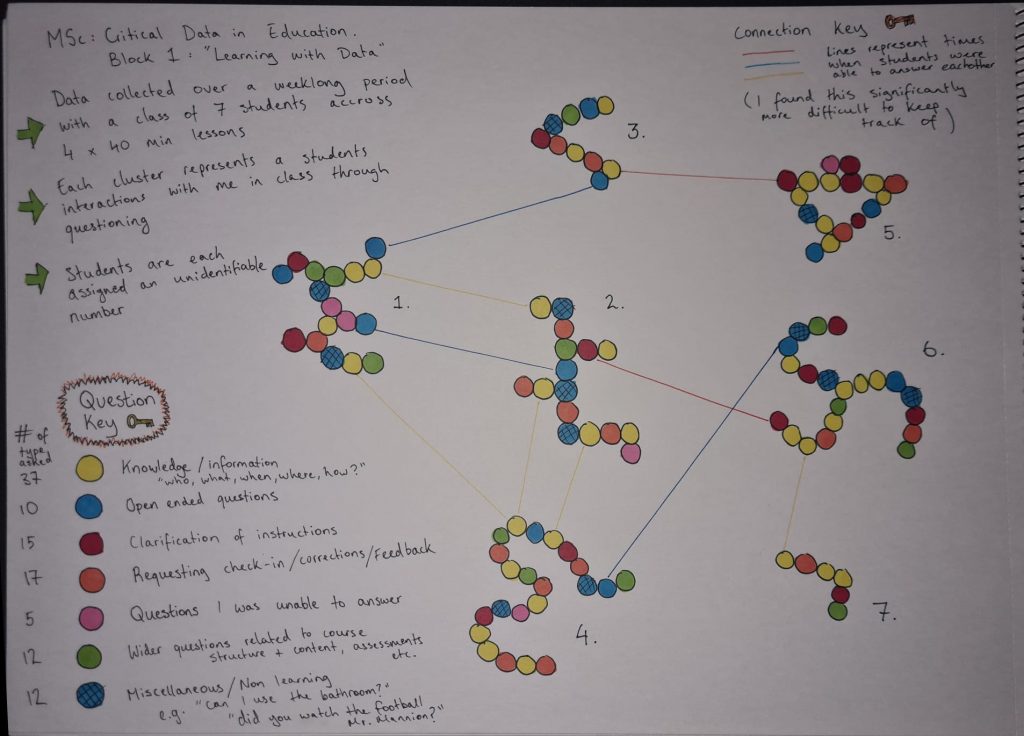 MSc: Critical Data in Education.
Block 1: "Learning with Data"
Data collected over a weeklong period
with a class of 7 students accross
4 x 40 min lessons
Each cluster represents a students
interactions with me in class through
questioning
Students are each
assigned an unidentifiable
number
Connection Key
Lines represent times
when students were
able to answer eachother
(I found this significantly
more difficult to keep
track of)
3.
5.
1.
2.
6.
4.
7.
Question
Key
# of
type
asked
37 Knowledge/information
"who, what, when, where, how?"
10 Open ended questions
15 Clarification of instructions
17 Requesting check-in/corrections/Feedback
5 Questions I was unable to answer
12 Wider questions related to course
structure + content, assessments
etc.
12 Miscellaneous/Non learning
e.g. "can I use the bathroom?"
"did you watch the football
Mr. Mannion?"